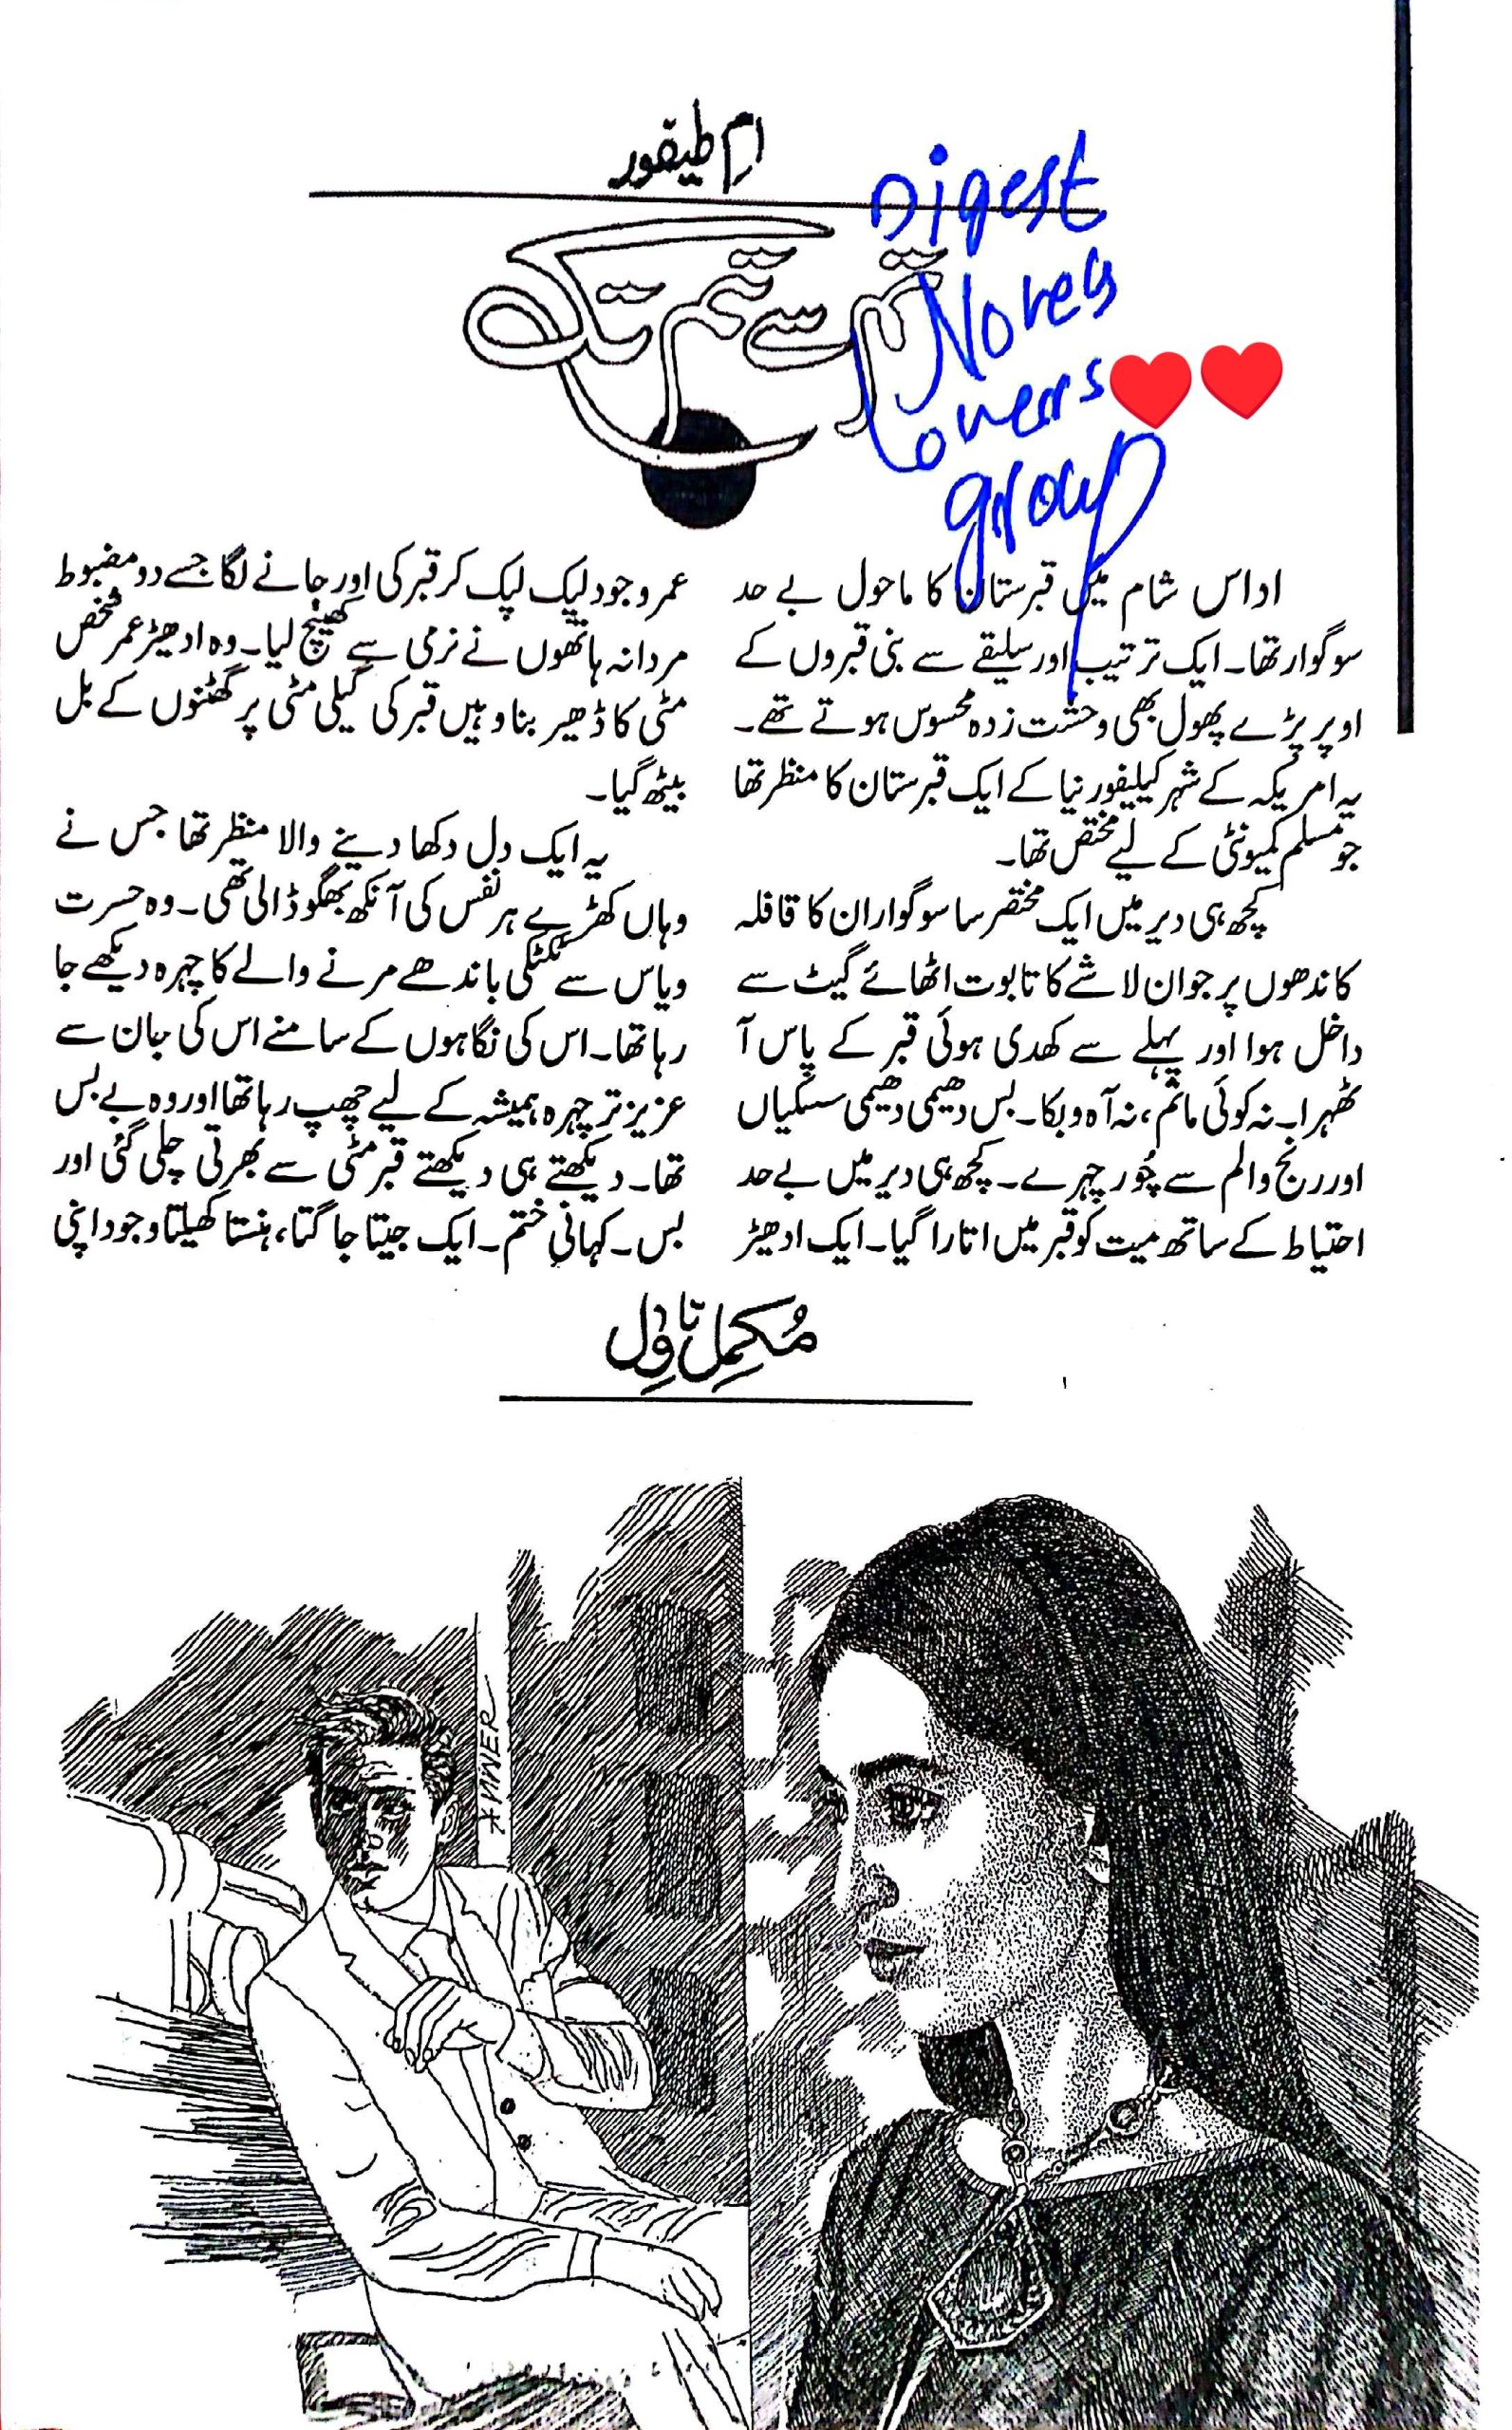 ام طیفور
تم سے تم تک
Digest
Novels
Lovers
group
اداس شام میں قبرستان کا ماحول بے حد
سوگوار تھا۔ ایک ترتیب اور سلیقے سے بنی قبروں کے
اوپر پڑے پھول بھی وحشت زدہ محسوس ہوتے تھے۔
یہ امریکہ کے شہر کیلیفورنیا کے ایک قبرستان کا منظر تھا
جو مسلم کمیونٹی کے لیے مختص تھا۔
کچھ ہی دیر میں ایک مختصر سا سوگواران کا قافلہ
کاندھوں پر جوان لاشے کا تابوت اٹھائے گیٹ سے
داخل ہوا اور پہلے سے کھدی ہوئی قبر کے پاس آ
ٹھہرا۔ نہ کوئی ماتم، نہ آہ و بکا۔ بس دھیمی دھیمی سسکیاں
اور رنج والم سے چُور چہرے۔ کچھ ہی دیر میں بے حد
احتیاط کے ساتھ میت کو قبر میں اتارا گیا۔ ایک ادھیڑ
عمر وجود لپک لپک کر قبر کی اور جانے لگا جسے دو مضبوط
مردانہ ہاتھوں نے نرمی سے کھینچ لیا۔ وہ ادھیڑ عمر شخص
مٹی کا ڈھیر بنا وہیں قبر کی گیلی مٹی پر گھٹنوں کے بل
بیٹھ گیا۔
یہ ایک دل دکھا دینے والا منظر تھا جس نے
وہاں کھڑے ہر نفس کی آنکھ بھگو ڈالی تھی۔ وہ حسرت
ویاس سے ٹکٹکی باندھے مرنے والے کا چہرہ دیکھے جا
رہا تھا۔ اس کی نگاہوں کے سامنے اس کی جان سے
عزیز تر چہرہ ہمیشہ کے لیے چھپ رہا تھا اور وہ بے بس
تھا۔ دیکھتے ہی دیکھتے قبر مٹی سے بھرتی چلی گئی اور
بس۔ کہانی ختم۔ ایک جیتا جاگتا، ہنستا کھیلتا وجود اپنی
مُکمِل ناوِل